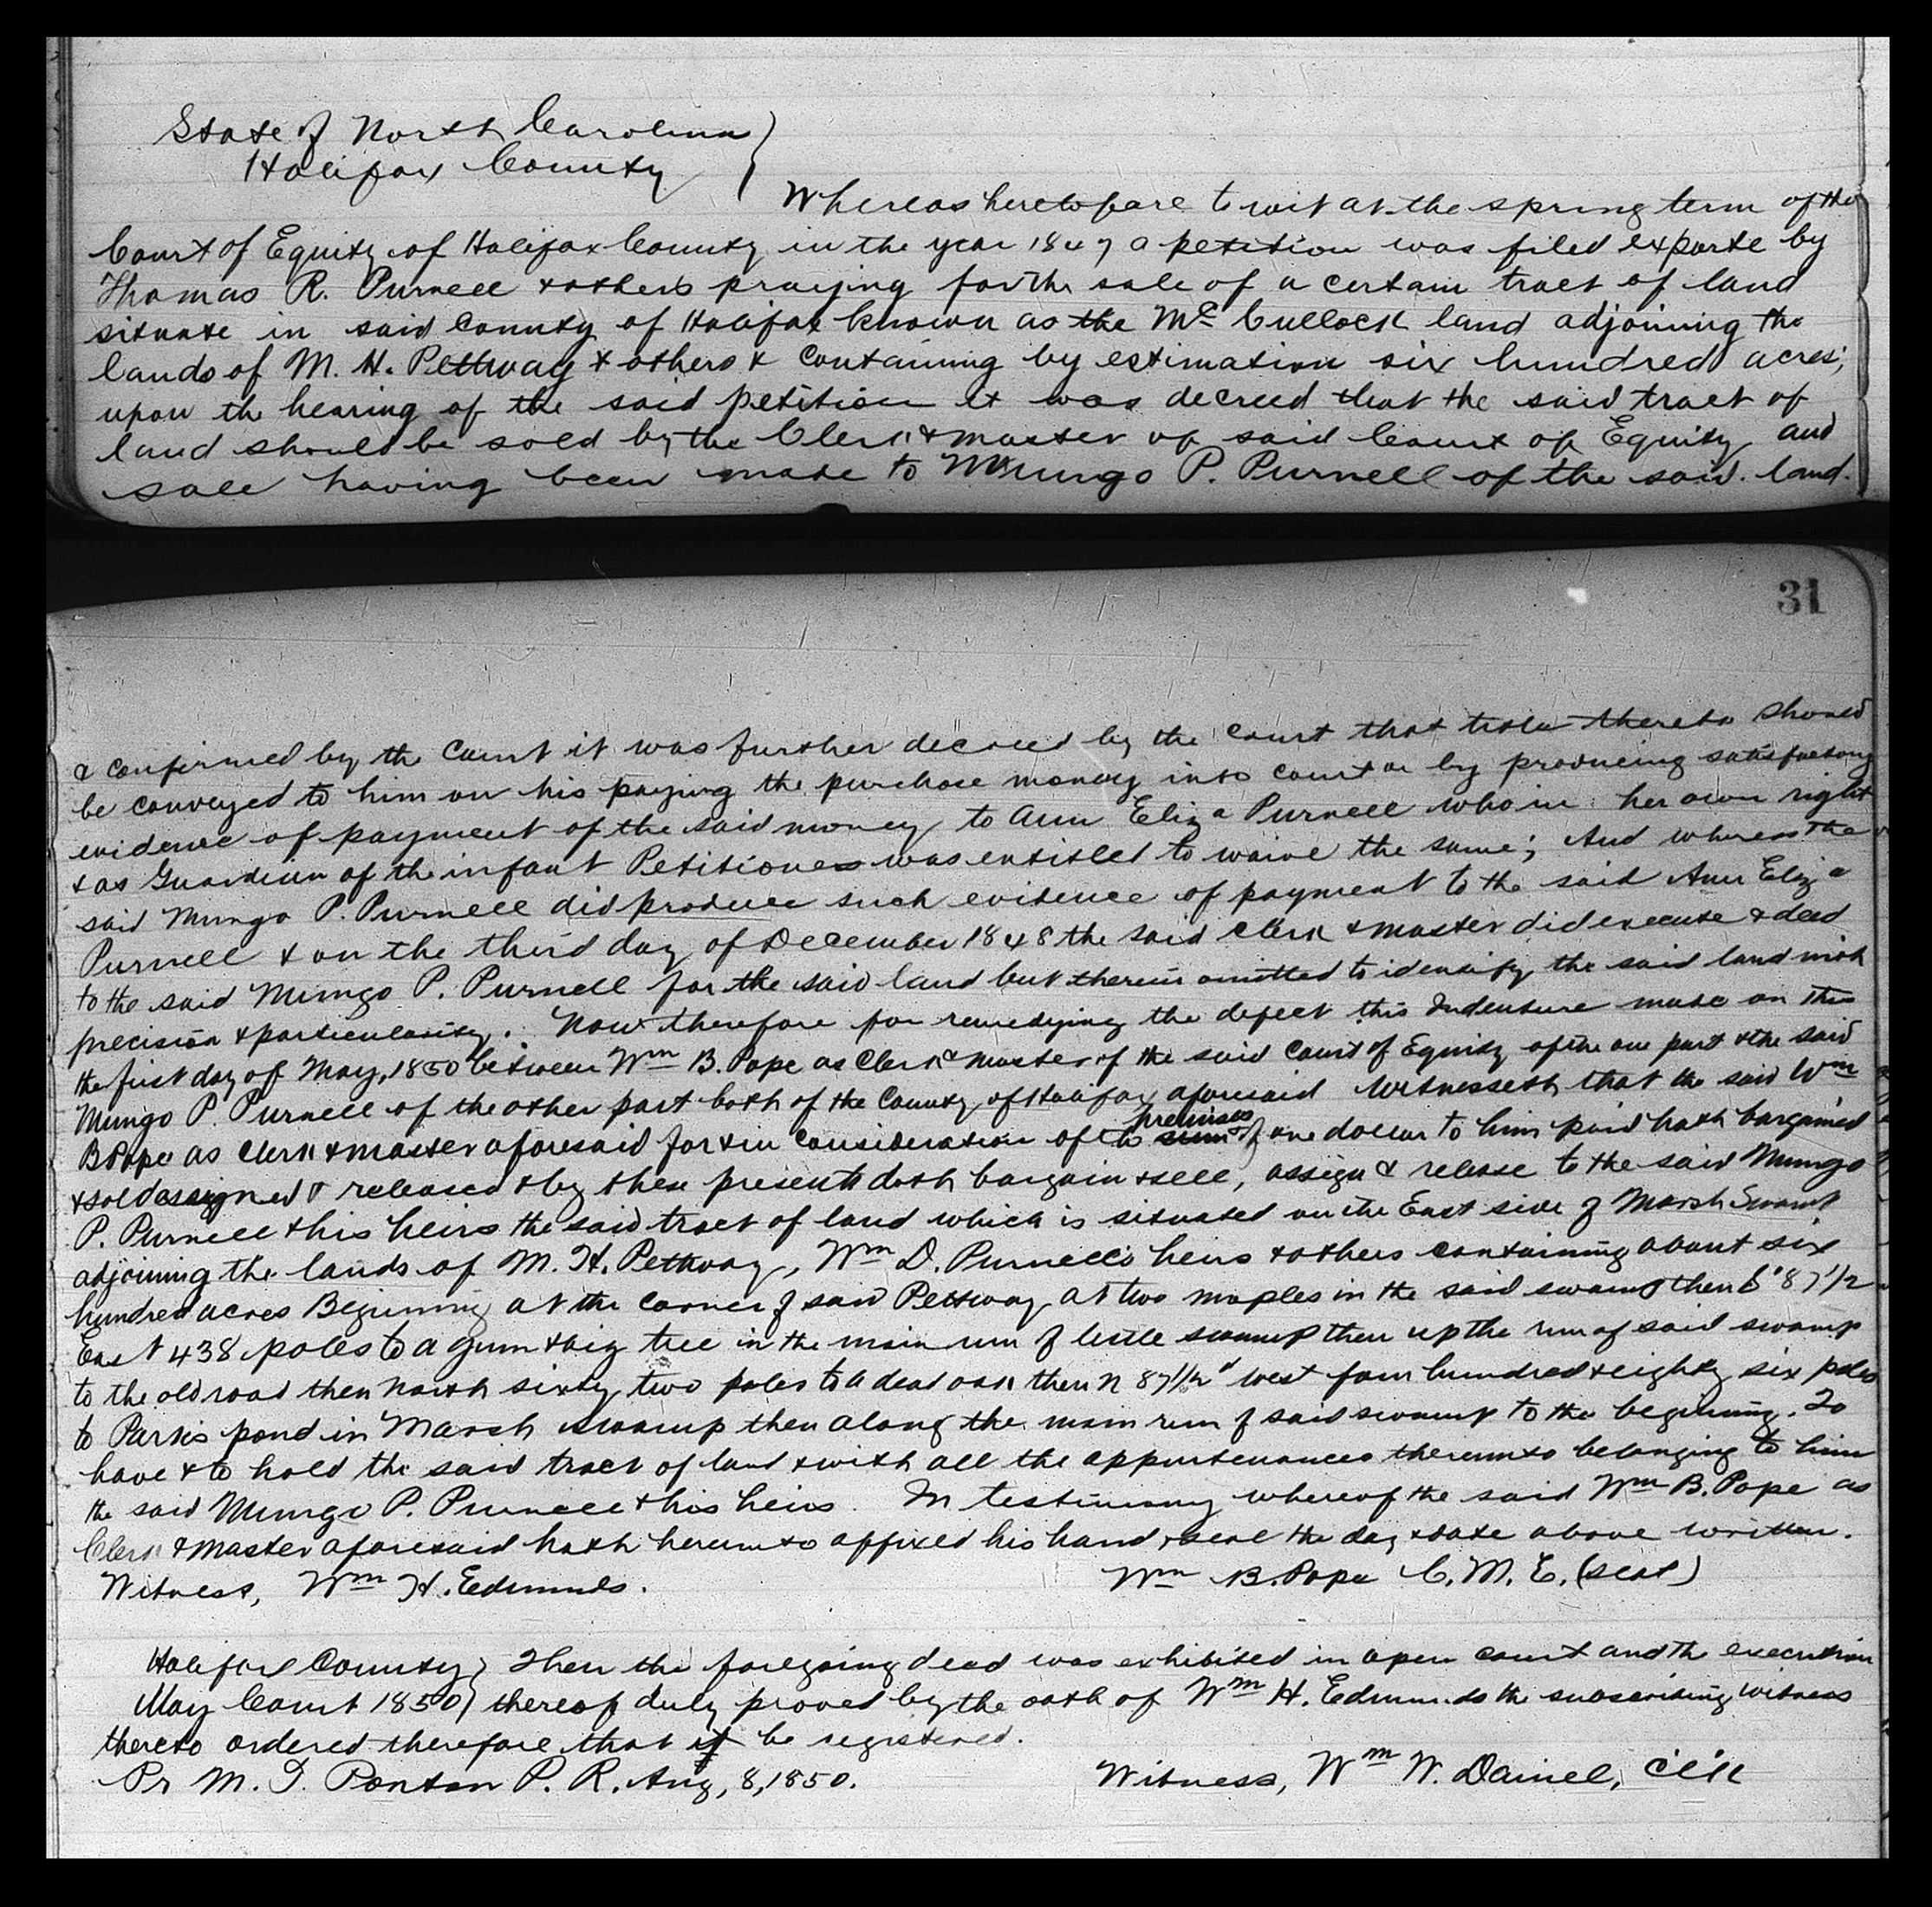 State of North Carolina
Halifax County
Whereas heretofore to wit at the spring term of the
Court of Equity of Halifax County in the year 1847 a petition was filed exparte by
Thomas R. Purnell & others praying for the sale of a certain tract of land
situate in said County of Halifax known as the Mc Cullock land adjoining the
lands of M. H. Pettway & others & containing by estimation six hundred acres;
upon the hearing of the said petition it was decreed that the said tract of
land should be sold by the Clerk & master of said Court of Equity and
sale having been made to Mungo P. Purnell of the said land.
31
& confirmed by the Court it was further decreed by the Court that title thereto should
be conveyed to him on his paying the purchase money into court or by producing satisfactory
evidence of payment of the said money to Ann Eliza Purnell who in her own right
& as Guardian of the infant Petitioners was entitled to waive the same; And whereas the
said Mungo P. Purnell did produce such evidence of payment to the said Ann Eliza
Purnell & on the third day of December 1848 the said Clerk & master did execute a deed
to the said Mungo P. Purnell for the said land but therein omitted to identify the said land with
precision & particularity. Now therefore for remedying the defect this Indenture made on this
the first day of May, 1850 between Wm B. Pope as Clerk & master of the said Court of Equity of the one part & the said
Mungo P. Purnell of the other part both of the County of Halifax aforesaid Witnesseth that the said Wm
B Pope as Clerk & master aforesaid for & in consideration of the premises & one dollar to him paid hath bargained
& sold assigned & released & by these presents doth bargain & sell, assign & release to the said Mungo
P. Purnell & his heirs the said tract of land which is situated on the East side of Marsh Swamp
adjoining the lands of M. H. Pettway, Wm D. Purnell's heirs & others containing about six
hundred acres Beginning at the corner of said Pettway at two maples in the said swamp then 87 1/2
East 438 poles to a gum & big tree in the main run of little swamp then up the run of said swamp
to the old road then North sixty two poles to a dead oak then N 87 1/2° west four hundred & eighty six poles
to Parks pond in Marsh swamp then along the main run of said swamp to the beginning. To
have & to hold the said tract of land & with all the appurtenances thereunto belonging to him
the said Mungo P. Purnell & his heirs. In testimony whereof the said Wm B. Pope as
Clerk & master aforesaid hath hereunto affixed his hand & seal the day & date above written.
Witness, Wm H. Edmunds. Wm B. Pope C. M. E. (seal)
Halifax County } Then the foregoing deed was exhibited in open court and the execution
May Court 1850 } thereof duly proved by the oath of Wm H. Edmunds the subscribing witness
thereto ordered therefore that it be registered.
Pr M. T. Ponton P. R. Aug, 8, 1850. Witness, Wm W. Daniel, Clk